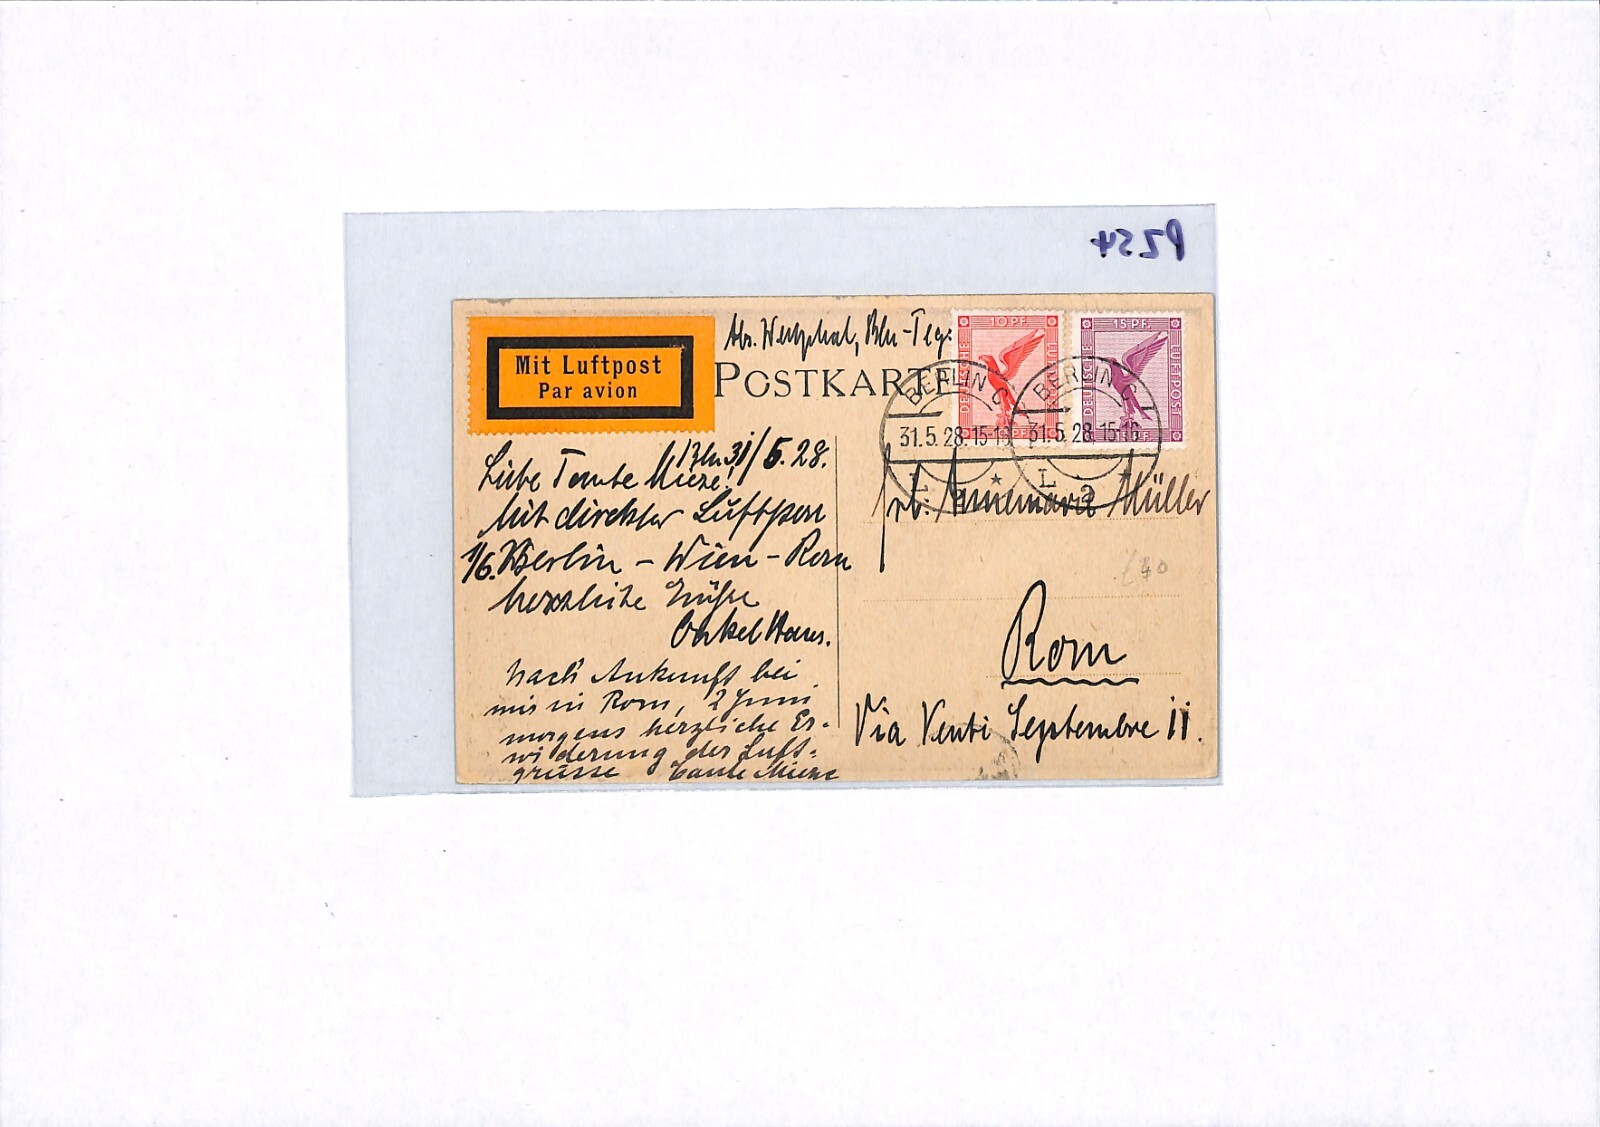 PZ54
Mit Luftpost
Par avion
Abs. Westphal, Bln-Teg.
POSTKARTE
10 PF.
DEUTSCHE LUFTPOST
15 PF.
DEUTSCHE LUFTPOST
15 PF.
BERLIN C
31.5.28.15-16
L
BERLIN C
31.5.28.15-16
L a
Bln. 31/5.28.
Liebe Tante Mieze!
Mit direkter Luftpost
1/6. Berlin - Wien - Rom
herzliche Grüße
Onkel Hans.
Nach Ankunft bei
mir in Rom, 2 Juni
morgens herzliche Er-
widerung der Luft-
grüsse Tante Mieze
Annemarie Müller
£40
Rom
Via Venti Septembre 11.